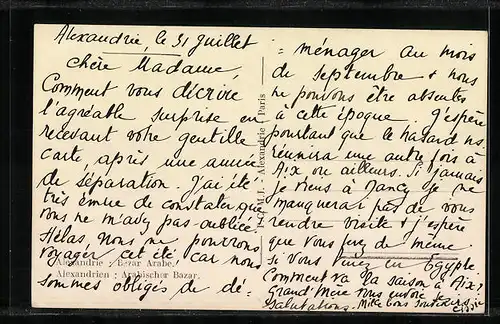 Alexandrie, le 31 juillet
Chère Madame,
Comment vous décrire
l'agréable surprise en
recevant votre gentille
carte, après une année
de séparation. J'ai été
très émue de constater que
vous ne m'avez pas oubliée.
Hélas, nous ne pourrons
voyager cet été car nous
sommes obligés de dé-
= ménager au mois
de septembre & nous
ne pouvons être absentes
à cette époque. J'espère
pourtant que le hasard ns.
réunira une autre fois à
Aix ou ailleurs. Si jamais
je viens à Nancy je ne
manquerai pas de vous
rendre visite & j'espère
que vous ferez de même
si vous venez en Egypte
Comment va la saison à Aix?
Grand'Mère vous envoie
salutations. Mille bons souvenirs
Cissie
Alexandrie: Bazar Arabe.
Alexandrien: Arabischer Bazar.
Alexandrie - Paris